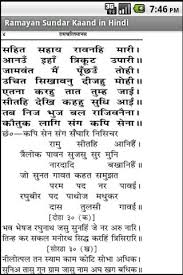 7:46 PM
Ramayan Sundar Kaand in Hindi
सहित सहाय रावनहि मारी।
आनउँ इहाँ त्रिकूट उपारी॥
जामवंत मैं पूँछउँ तोही।
उचित सिखावनु दीजहु मोही॥
एतना करहु तात तुम्ह जाई।
सीतहि देखि कहहु सुधि आई॥
तब निज भुज बल राजिवनैना।
कौतुक लागि संग कपि सेना॥
छं०–कपि सेन संग सँघारि निसिचर
रामु सीतहि आनिहैं।
त्रैलोक पावन सुजसु सुर मुनि
नारदादि बखानिहैं॥
जो सुनत गावत कहत समुझत
परम पद नर पावई।
रघुबीर पद पाथोज मधुकर
दास तुलसी गावई॥
[दोहा ३० (क)]
भव भेषज रघुनाथ जसु सुनहिं जे नर अरु नारि।
तिन्ह कर सकल मनोरथ सिद्ध करहिं त्रिसिरारि॥
[दोहा ३० (ख)]
नीलोत्पल तन स्याम काम कोटि सोभा अधिक।
सुनिअ तासु गुन ग्राम जासु नाम अघ खग बधिक॥